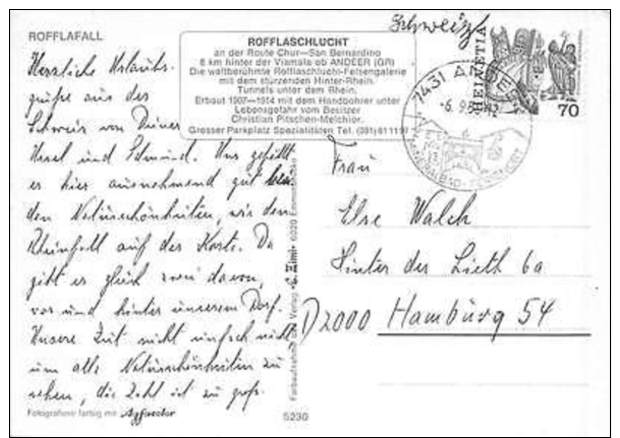 ROFFLAFALL
Schweiz
ROFFLASCHLUCHT
an der Route Chur—San Bernardino
8 km hinter der Viamala ob ANDEER (GR)
Die weltberühmte Rofflaschlucht-Felsengalerie
mit dem stürzenden Hinter-Rhein.
Tunnels unter dem Rhein.
Erbaut 1907—1914 mit dem Handbohrer unter
Lebensgefahr vom Besitzer
Christian Pitschen-Melchior.
Grosser Parkplatz Spezialitäten Tel. (081) 61 11 97
HELVETIA
70
7431 ANDEER
-6.9.
Herzliche Urlaubs-
grüße aus der
Schweiz von Deiner
und Uns gefällt
es hier ausnehmend gut bei
den Naturschönheiten, wie dem
Rheinfall auf der Karte. Da
gibt es gleich zwei davon,
vor und hinter unserem Dorf.
Unsere Zeit reicht einfach nicht
um alle Naturschönheiten zu
sehen, die Zahl ist zu groß.
Frau
Else Walch
Hinter der Lieth 6a
D 2000 Hamburg 54
Verlag 6020
Fotografiere farbig mit Agfacolor
5230